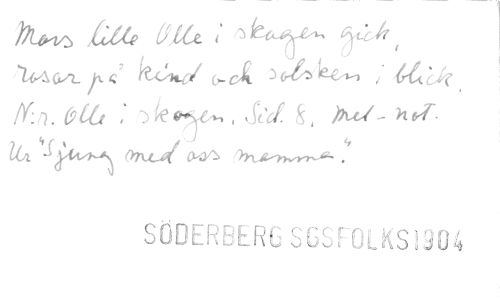 Mors lille Olle i skogen gick,
rosor på kind och solsken i blick.
N:r. Olle i skogen. Sid. 8. Mel-not.
Ur "Sjung med oss mamma".
SÖDERBERG SGSFOLKS1904